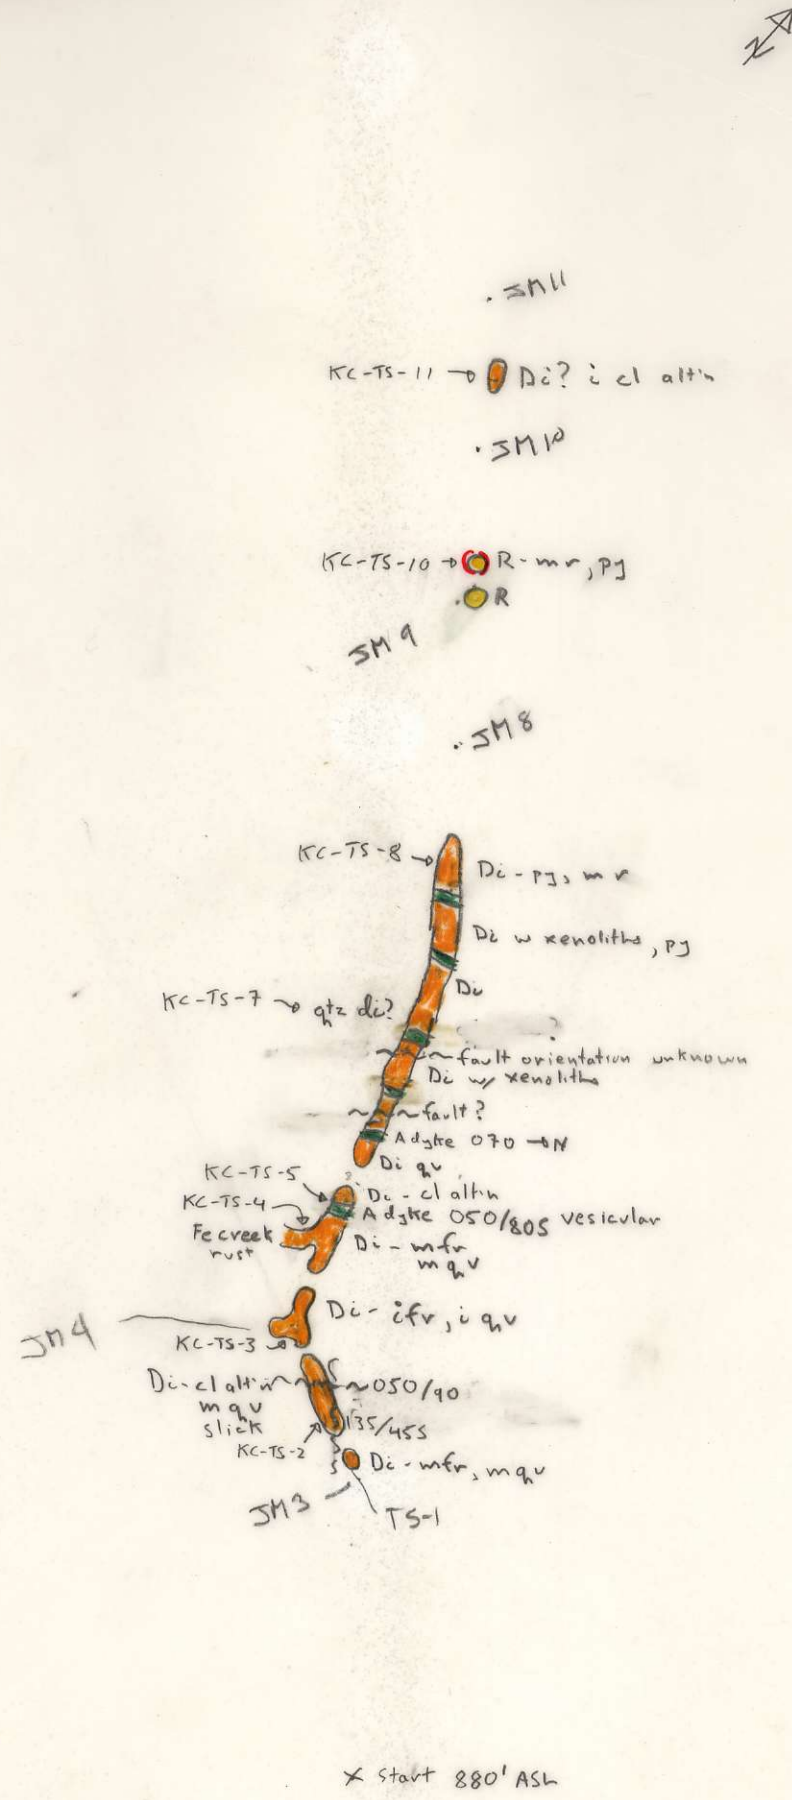 N
JM11
KC-TS-11 → Di? i cl alt'n
JM10
KC-TS-10 → R-mr, py
R
JM9
JM8
KC-TS-8 → Di-py, mr
Di w xenoliths, py
Di
KC-TS-7 → qtz di?
?
~ fault orientation unknown
Di w/ xenoliths
~ fault?
A dyke 070 → N
Di qv
KC-TS-5
?
Di-cl alt'n
KC-TS-4
A dyke 050/80S vesicular
Fe creek
rust
Di-mfr
mqv
Di-ifr, i qv
JM4
KC-TS-3
Di-cl alt'n ~050/90
mqv
slick
135/45S
KC-TS-2
Di-mfr, mqv
JM3
TS-1
X Start 880' ASL